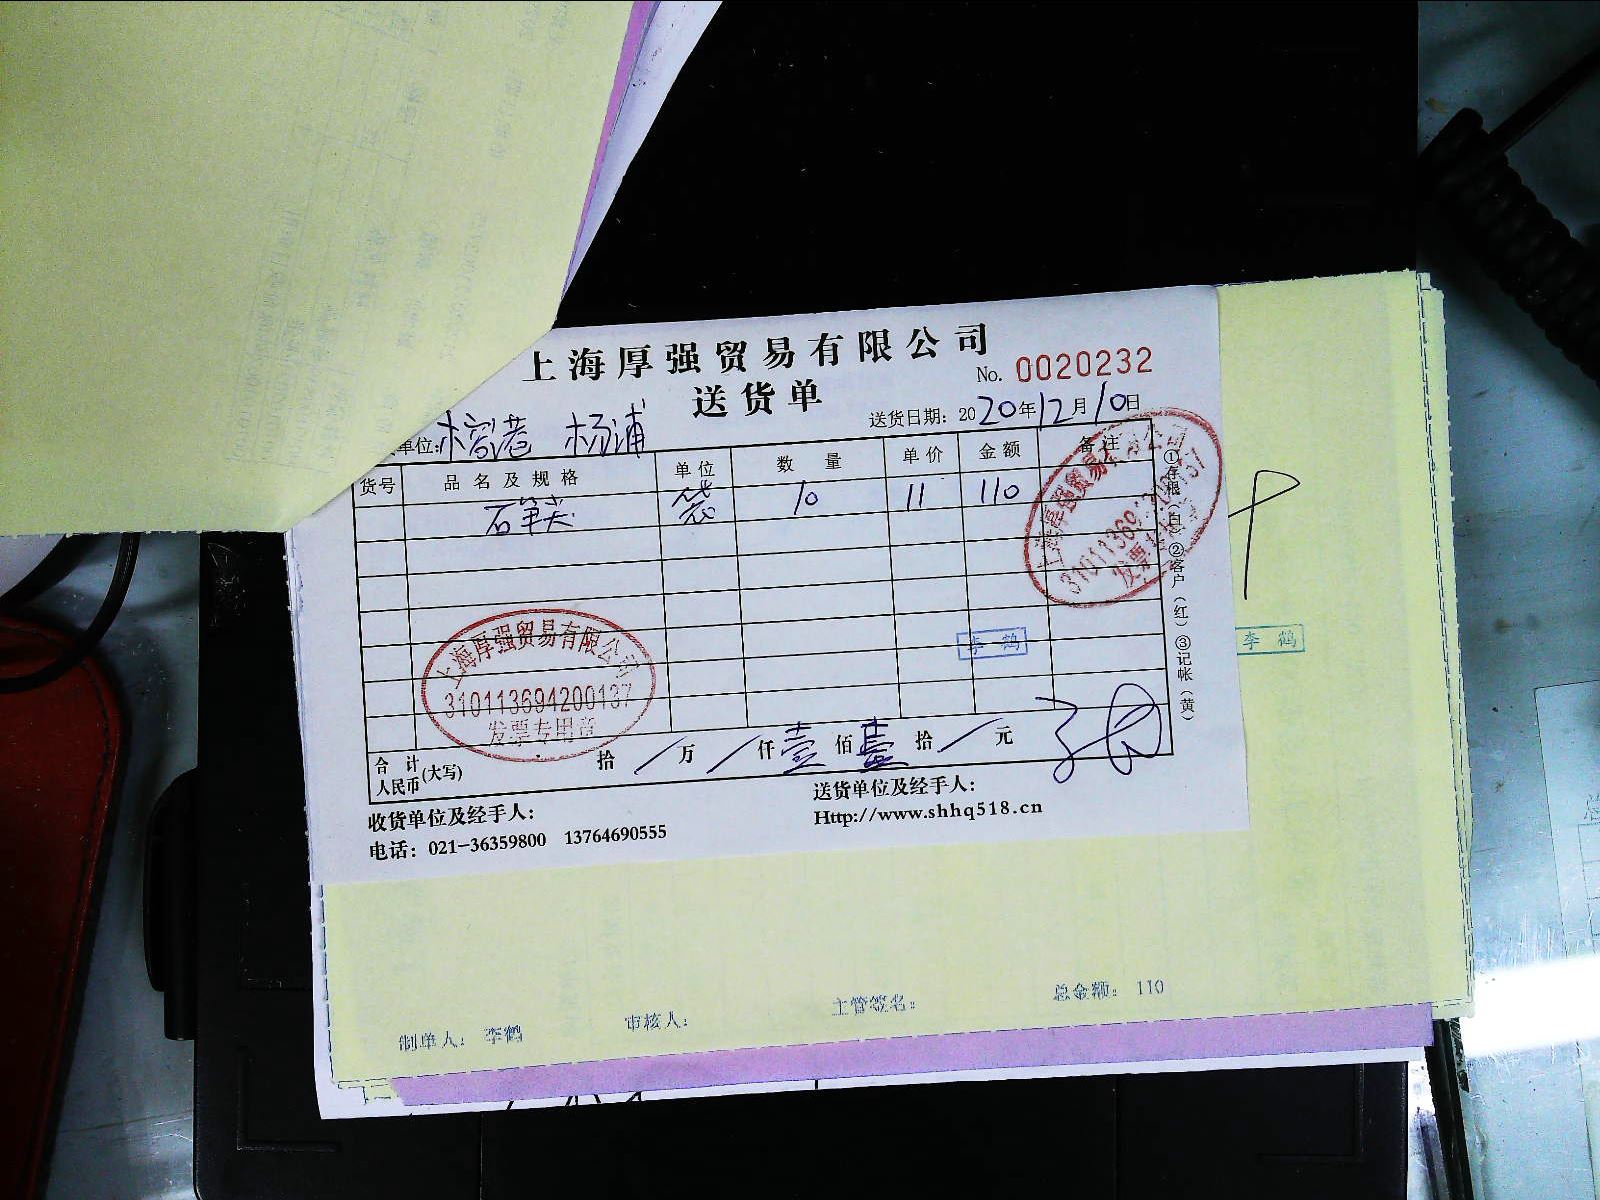 上海厚强贸易有限公司
No. 0020232
送货单
送货日期: 2020年12月10日
单位: 榕港 杨浦
货号 品名及规格 单位 数量 单价 金额 备注
石笔尖 袋 10 11 110
上海厚强贸易有限公司
310113694200137
发票专用章
上海厚强贸易有限公司
310113694200137
发票专用章
李鹤
李鹤
①存根(白)②客户(红)③记帐(黄)
合计人民币(大写) 拾/万/仟壹佰壹拾/元
收货单位及经手人:
送货单位及经手人:
电话: 021-36359800 13764690555
Http://www.shhq518.cn
制单人: 李鹤 审核人: 主管签名: 总金额: 110